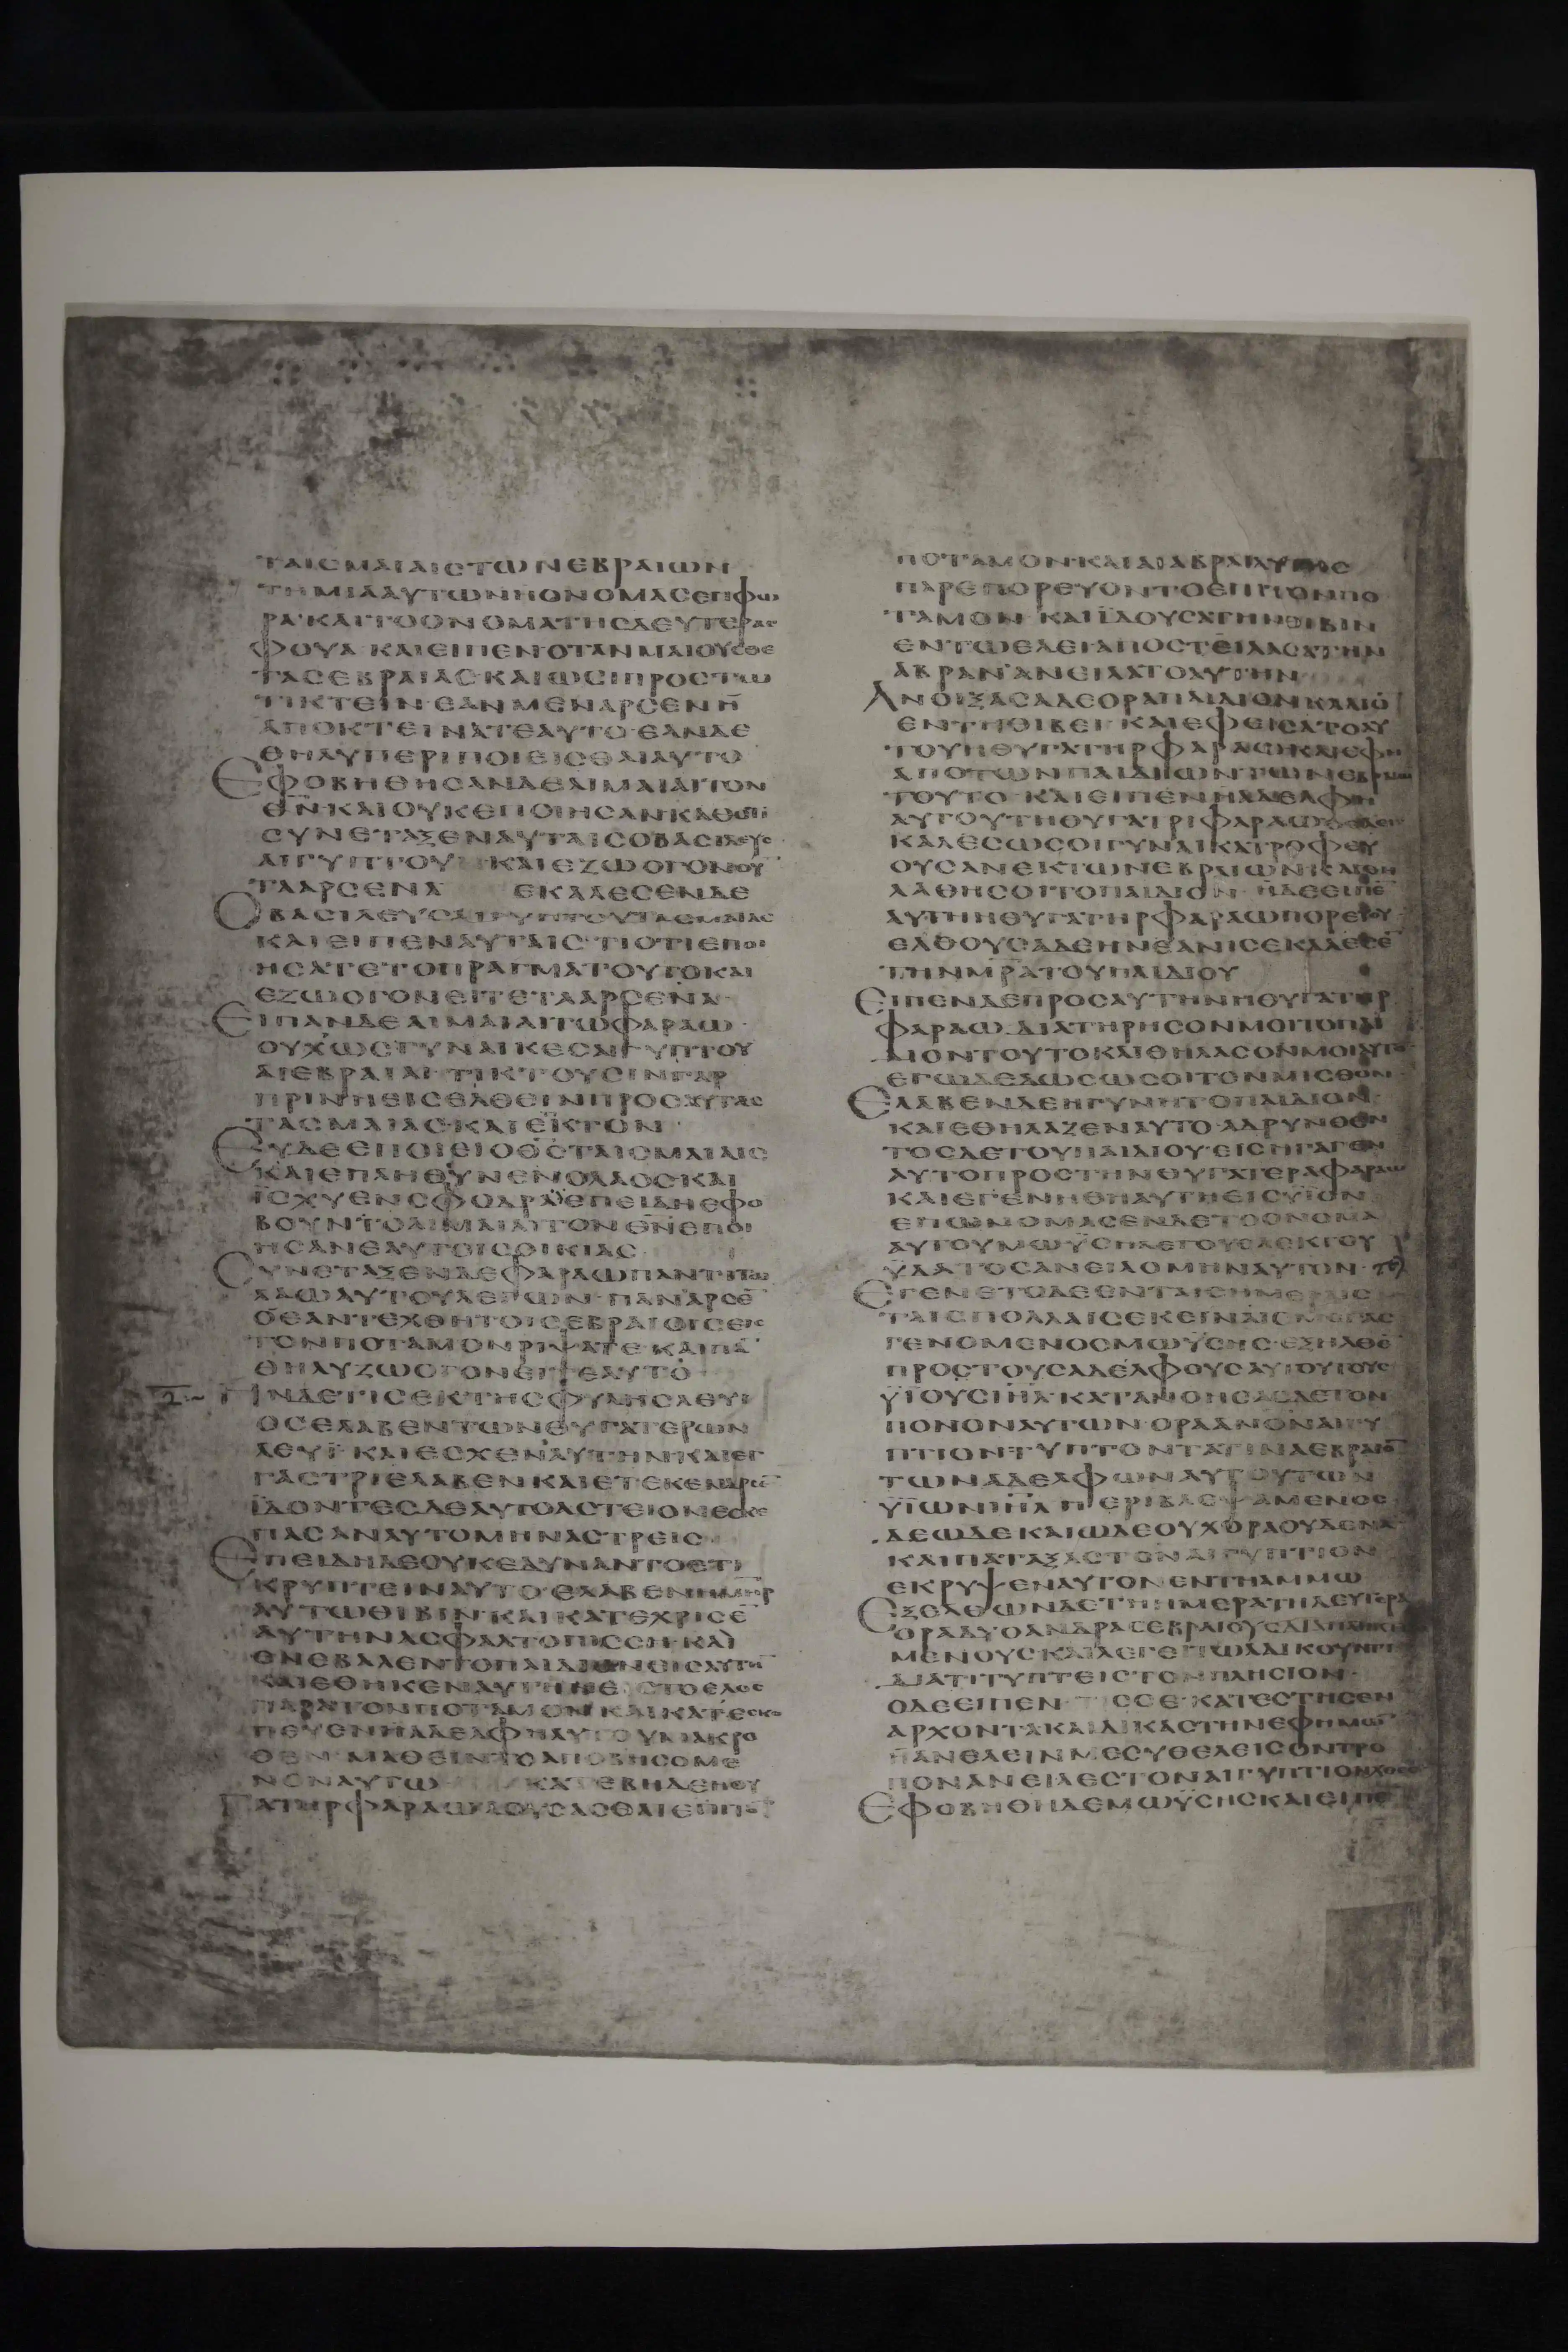 ΤΑΙΣΜΑΙΑΙΣΤΩΝΕΒΡΑΙΩΝ
ΤΗΜΙΑΑΥΤΩΝΗΟΝΟΜΑΣΕΠΦΩ
ΡΑ·ΚΑΙΤΟΟΝΟΜΑΤΗΣΔΕΥΤΕΡΑΣ
ΦΟΥΑ·ΚΑΙΕΙΠΕΝΟΤΑΝΜΑΙΟΥΣΘΕ
ΤΑΣΕΒΡΑΙΑΣ·ΚΑΙΩΣΙΠΡΟΣΤΩ
ΤΙΚΤΕΙΝ·ΕΑΝΜΕΝΑΡΣΕΝΗ
ΑΠΟΚΤΕΙΝΑΤΕΑΥΤΟ·ΕΑΝΔΕ
ΘΗΛΥΠΕΡΙΠΟΙΕΙΣΘΑΙΑΥΤΟ
ΕΦΟΒΗΘΗΣΑΝΔΕΑΙΜΑΙΑΙΤΟΝ
ΘΝ̅·ΚΑΙΟΥΚΕΠΟΙΗΣΑΝΚΑΘΟΤΙ
ΣΥΝΕΤΑΞΕΝΑΥΤΑΙΣΟΒΑΣΙΛΕΥΣ
ΑΙΓΥΠΤΟΥ ΚΑΙΕΖΩΟΓΟΝΟΥ
ΤΑΑΡΣΕΝΑ ΕΚΑΛΕΣΕΝΔΕ
ΟΒΑΣΙΛΕΥΣΑΙΓΥΠΤΟΥΤΑΣΜΑΙΑΣ
ΚΑΙΕΙΠΕΝΑΥΤΑΙΣ·ΤΙΟΤΙΕΠΟΙ
ΗΣΑΤΕΤΟΠΡΑΓΜΑΤΟΥΤΟΚΑΙ
ΕΖΩΟΓΟΝΕΙΤΕΤΑΑΡΣΕΝΑ·
ΕΙΠΑΝΔΕΑΙΜΑΙΑΙΤΩΦΑΡΑΩ·
ΟΥΧΩΣΓΥΝΑΙΚΕΣΑΙΓΥΠΤΟΥ
ΑΙΕΒΡΑΙΑΙ·ΤΙΚΤΟΥΣΙΝΓΑΡ
ΠΡΙΝΗΕΙΣΕΛΘΕΙΝΠΡΟΣΑΥΤΑΣ
ΤΑΣΜΑΙΑΣ·ΚΑΙΕΤΙΚΤΟΝ·
ΕΥΔΕΕΠΟΙΕΙΟΘΣ̅ΤΑΙΣΜΑΙΑΙΣ
ΚΑΙΕΠΛΗΘΥΝΕΝΟΛΑΟΣΚΑΙ
ΙΣΧΥΕΝΣΦΟΔΡΑ·ΕΠΕΙΔΗΕΦΟ
ΒΟΥΝΤΟΑΙΜΑΙΑΙΤΟΝΘΝ̅ΕΠΟΙ
ΗΣΑΝΕΑΥΤΟΙΣΟΙΚΙΑΣ·
ΣΥΝΕΤΑΞΕΝΔΕΦΑΡΑΩΠΑΝΤΙΤΩ
ΛΑΩΑΥΤΟΥΛΕΓΩΝ·ΠΑΝΑΡΣΕ̅
ΟΕΑΝΤΕΧΘΗΤΟΙΣΕΒΡΑΙΟΙΣΕΙΣ
ΤΟΝΠΟΤΑΜΟΝΡΙΨΑΤΕ·ΚΑΙΠΑ̅
ΘΗΛΥΖΩΟΓΟΝΕΙΤΕΑΥΤΟ·
ΗΝΔΕΤΙΣΕΚΤΗΣΦΥΛΗΣΛΕΥΙ
ΟΣΕΛΑΒΕΝΤΩΝΘΥΓΑΤΕΡΩΝ
ΛΕΥΙ·ΚΑΙΕΣΧΕΝΑΥΤΗΝ·ΚΑΙΕΓ
ΓΑΣΤΡΙΕΛΑΒΕΝΚΑΙΕΤΕΚΕΝΑΡΣΕ̅
ΙΔΟΝΤΕΣΔΕΑΥΤΟΑΣΤΕΙΟΝΕΣΚΕ
ΠΑΣΑΝΑΥΤΟΜΗΝΑΣΤΡΕΙΣ·
ΕΠΕΙΔΗΔΕΟΥΚΕΔΥΝΑΝΤΟΕΤΙ
ΚΡΥΠΤΕΙΝΑΥΤΟ·ΕΛΑΒΕΝΗΜΗΡ
ΑΥΤΩΘΙΒΙΝ·ΚΑΙΚΑΤΕΧΡΙΣΕ̅
ΑΥΤΗΝΑΣΦΑΛΤΟΠΙΣΣΗ·ΚΑΙ
ΕΝΕΒΑΛΕΝΤΟΠΑΙΔΙΟΝΕΙΣΑΥΤΗ̅
ΚΑΙΕΘΗΚΕΝΑΥΤΗΝΕΙΣΤΟΕΛΟΣ
ΠΑΡΑΤΟΝΠΟΤΑΜΟΝ·ΚΑΙΚΑΤΕΣΚΟ
ΠΕΥΕΝΗΑΔΕΛΦΗΑΥΤΟΥΜΑΚΡΟ
ΘΕΝ·ΜΑΘΕΙΝΤΟΑΠΟΒΗΣΟΜΕ
ΝΟΝΑΥΤΩ ΚΑΤΕΒΗΔΕΗΘΥ
ΓΑΤΗΡΦΑΡΑΩΛΟΥΣΑΣΘΑΙΕΠΙΤΟ̅
ΠΟΤΑΜΟΝ·ΚΑΙΑΙΑΒΡΑΙΑΥΤΗΣ
ΠΑΡΕΠΟΡΕΥΟΝΤΟΕΠΙΤΟΝΠΟ
ΤΑΜΟΝ·ΚΑΙΪΔΟΥΣΑΤΗΝΘΙΒΙΝ
ΕΝΤΩΕΛΕΙΑΠΟΣΤΕΙΛΑΣΑΤΗΝ
ΑΒΡΑΝΑΝΕΙΛΑΤΟΑΥΤΗΝ
ΑΝΟΙΞΑΣΑΔΕΟΡΑΠΑΙΔΙΟΝΚΛΑΙΟ̅
ΕΝΤΗΘΙΒΕΙ·ΚΑΙΕΦΕΙΣΑΤΟΑΥ
ΤΟΥΗΘΥΓΑΤΗΡΦΑΡΑΩ·ΚΑΙΕΦΗ
ΑΠΟΤΩΝΠΑΙΔΙΩΝΤΩΝΕΒΡΑΙΩ̅
ΤΟΥΤΟ·ΚΑΙΕΙΠΕΝΗΑΔΕΛΦΗ
ΑΥΤΟΥΤΗΘΥΓΑΤΡΙΦΑΡΑΩ
ΚΑΛΕΣΩΣΟΙΓΥΝΑΙΚΑΤΡΟΦΕΥ
ΟΥΣΑΝΕΚΤΩΝΕΒΡΑΙΩΝΚΑΙΘΗ
ΛΑΘΗΣΟΙΤΟΠΑΙΔΙΟΝ·ΗΔΕΕΙΠΕ̅
ΑΥΤΗΗΘΥΓΑΤΗΡΦΑΡΑΩΠΟΡΕΥΟΥ
ΕΛΘΟΥΣΑΔΕΗΝΕΑΝΙΣΕΚΑΛΕΣΕ̅
ΤΗΝΜΡ̅ΑΤΟΥΠΑΙΔΙΟΥ
ΕΙΠΕΝΔΕΠΡΟΣΑΥΤΗΝΗΘΥΓΑΤΗΡ
ΦΑΡΑΩ·ΔΙΑΤΗΡΗΣΟΝΜΟΙΤΟΠΑΙ
ΔΙΟΝΤΟΥΤΟΚΑΙΘΗΛΑΣΟΝΜΟΙΑΥΤΟ
ΕΓΩΔΕΔΩΣΩΣΟΙΤΟΝΜΙΣΘΟΝ·
ΕΛΑΒΕΝΔΕΗΓΥΝΗΤΟΠΑΙΔΙΟΝ·
ΚΑΙΕΘΗΛΑΖΕΝΑΥΤΟ·ΑΔΡΥΝΘΕΝ
ΤΟΣΔΕΤΟΥΠΑΙΔΙΟΥ·ΕΙΣΗΓΑΓΕΝ
ΑΥΤΟΠΡΟΣΤΗΝΘΥΓΑΤΕΡΑΦΑΡΑΩ
ΚΑΙΕΓΕΝΗΘΗΑΥΤΗΕΙΣΥΪΟΝ
ΕΠΩΝΟΜΑΣΕΝΔΕΤΟΟΝΟΜΑ
ΑΥΤΟΥΜΩΫΣΗΛΕΓΟΥΣΑΕΚΤΟΥ
ΫΔΑΤΟΣΑΝΕΙΛΟΜΗΝΑΥΤΟΝ·
ΕΓΕΝΕΤΟΔΕΕΝΤΑΙΣΗΜΕΡΑΙΣ
ΤΑΙΣΠΟΛΛΑΙΣΕΚΕΙΝΑΙΣΜΕΓΑΣ
ΓΕΝΟΜΕΝΟΣΜΩΫΣΗΣ·ΕΞΗΛΘΕ̅
ΠΡΟΣΤΟΥΣΑΔΕΛΦΟΥΣΑΥΤΟΥΤΟΥΣ
ΥΪΟΥΣΙΗΛ̅·ΚΑΤΑΝΟΗΣΑΣΔΕΤΟΝ
ΠΟΝΟΝΑΥΤΩΝ·ΟΡΑΑΝΟΝ̅ΑΙΓΥ
ΠΤΙΟΝΤΥΠΤΟΝΤΑΤΙΝΑΕΒΡΑΙΟ̅
ΤΩΝΑΔΕΛΦΩΝΑΥΤΟΥΤΩΝ
ΥΪΩΝΙΗΛ̅ΠΕΡΙΒΛΕΨΑΜΕΝΟΣ
ΔΕΩΔΕΚΑΙΩΔΕΟΥΧΟΡΑΟΥΔΕΝΑ
ΚΑΙΠΑΤΑΞΑΣΤΟΝΑΙΓΥΠΤΙΟΝ
ΕΚΡΥΨΕΝΑΥΤΟΝΕΝΤΗΑΜΜΩ
ΕΞΕΛΘΩΝΔΕΤΗΗΜΕΡΑΤΗΔΕΥΤΕΡΑ
ΟΡΑΔΥΟΑΝΔΡΑΣΕΒΡΑΙΟΥΣΔΙΑΠΛΗΚΤΙ
ΜΕΝΟΥΣΚΑΙΛΕΓΕΙΤΩΑΔΙΚΟΥΝΤΙ
ΔΙΑΤΙΤΥΠΤΕΙΣΤΟΝΠΛΗΣΙΟΝ·
ΟΔΕΕΙΠΕΝ·ΤΙΣΣΕ·ΚΑΤΕΣΤΗΣΕΝ
ΑΡΧΟΝΤΑΚΑΙΔΙΚΑΣΤΗΝΕΦΗΜΩ̅
ΗΑΝΕΛΕΙΝΜΕΣΥΘΕΛΕΙΣΟΝΤΡΟ
ΠΟΝΑΝΕΙΛΕΣΤΟΝΑΙΓΥΠΤΙΟΝΧΘΕΣ
ΕΦΟΒΗΘΗΔΕΜΩΫΣΗΣΚΑΙΕΙΠΕ̅